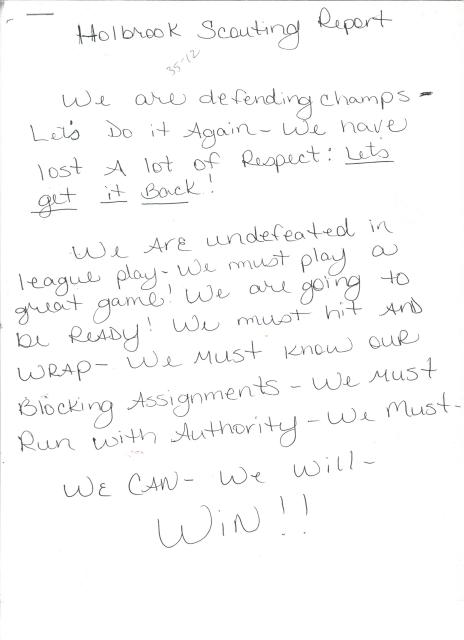 Holbrook Scouting Report
35-12
We are defending champs -
Let's Do it Again - We have
lost A lot of Respect: Let's
get it Back!
We ARE undefeated in
league play - We must play a
great game! We are going to
be READY! We must hit AND
WRAP - We Must know our
Blocking Assignments - We Must
Run with Authority - We Must -
WE CAN - We Will -
WIN!!